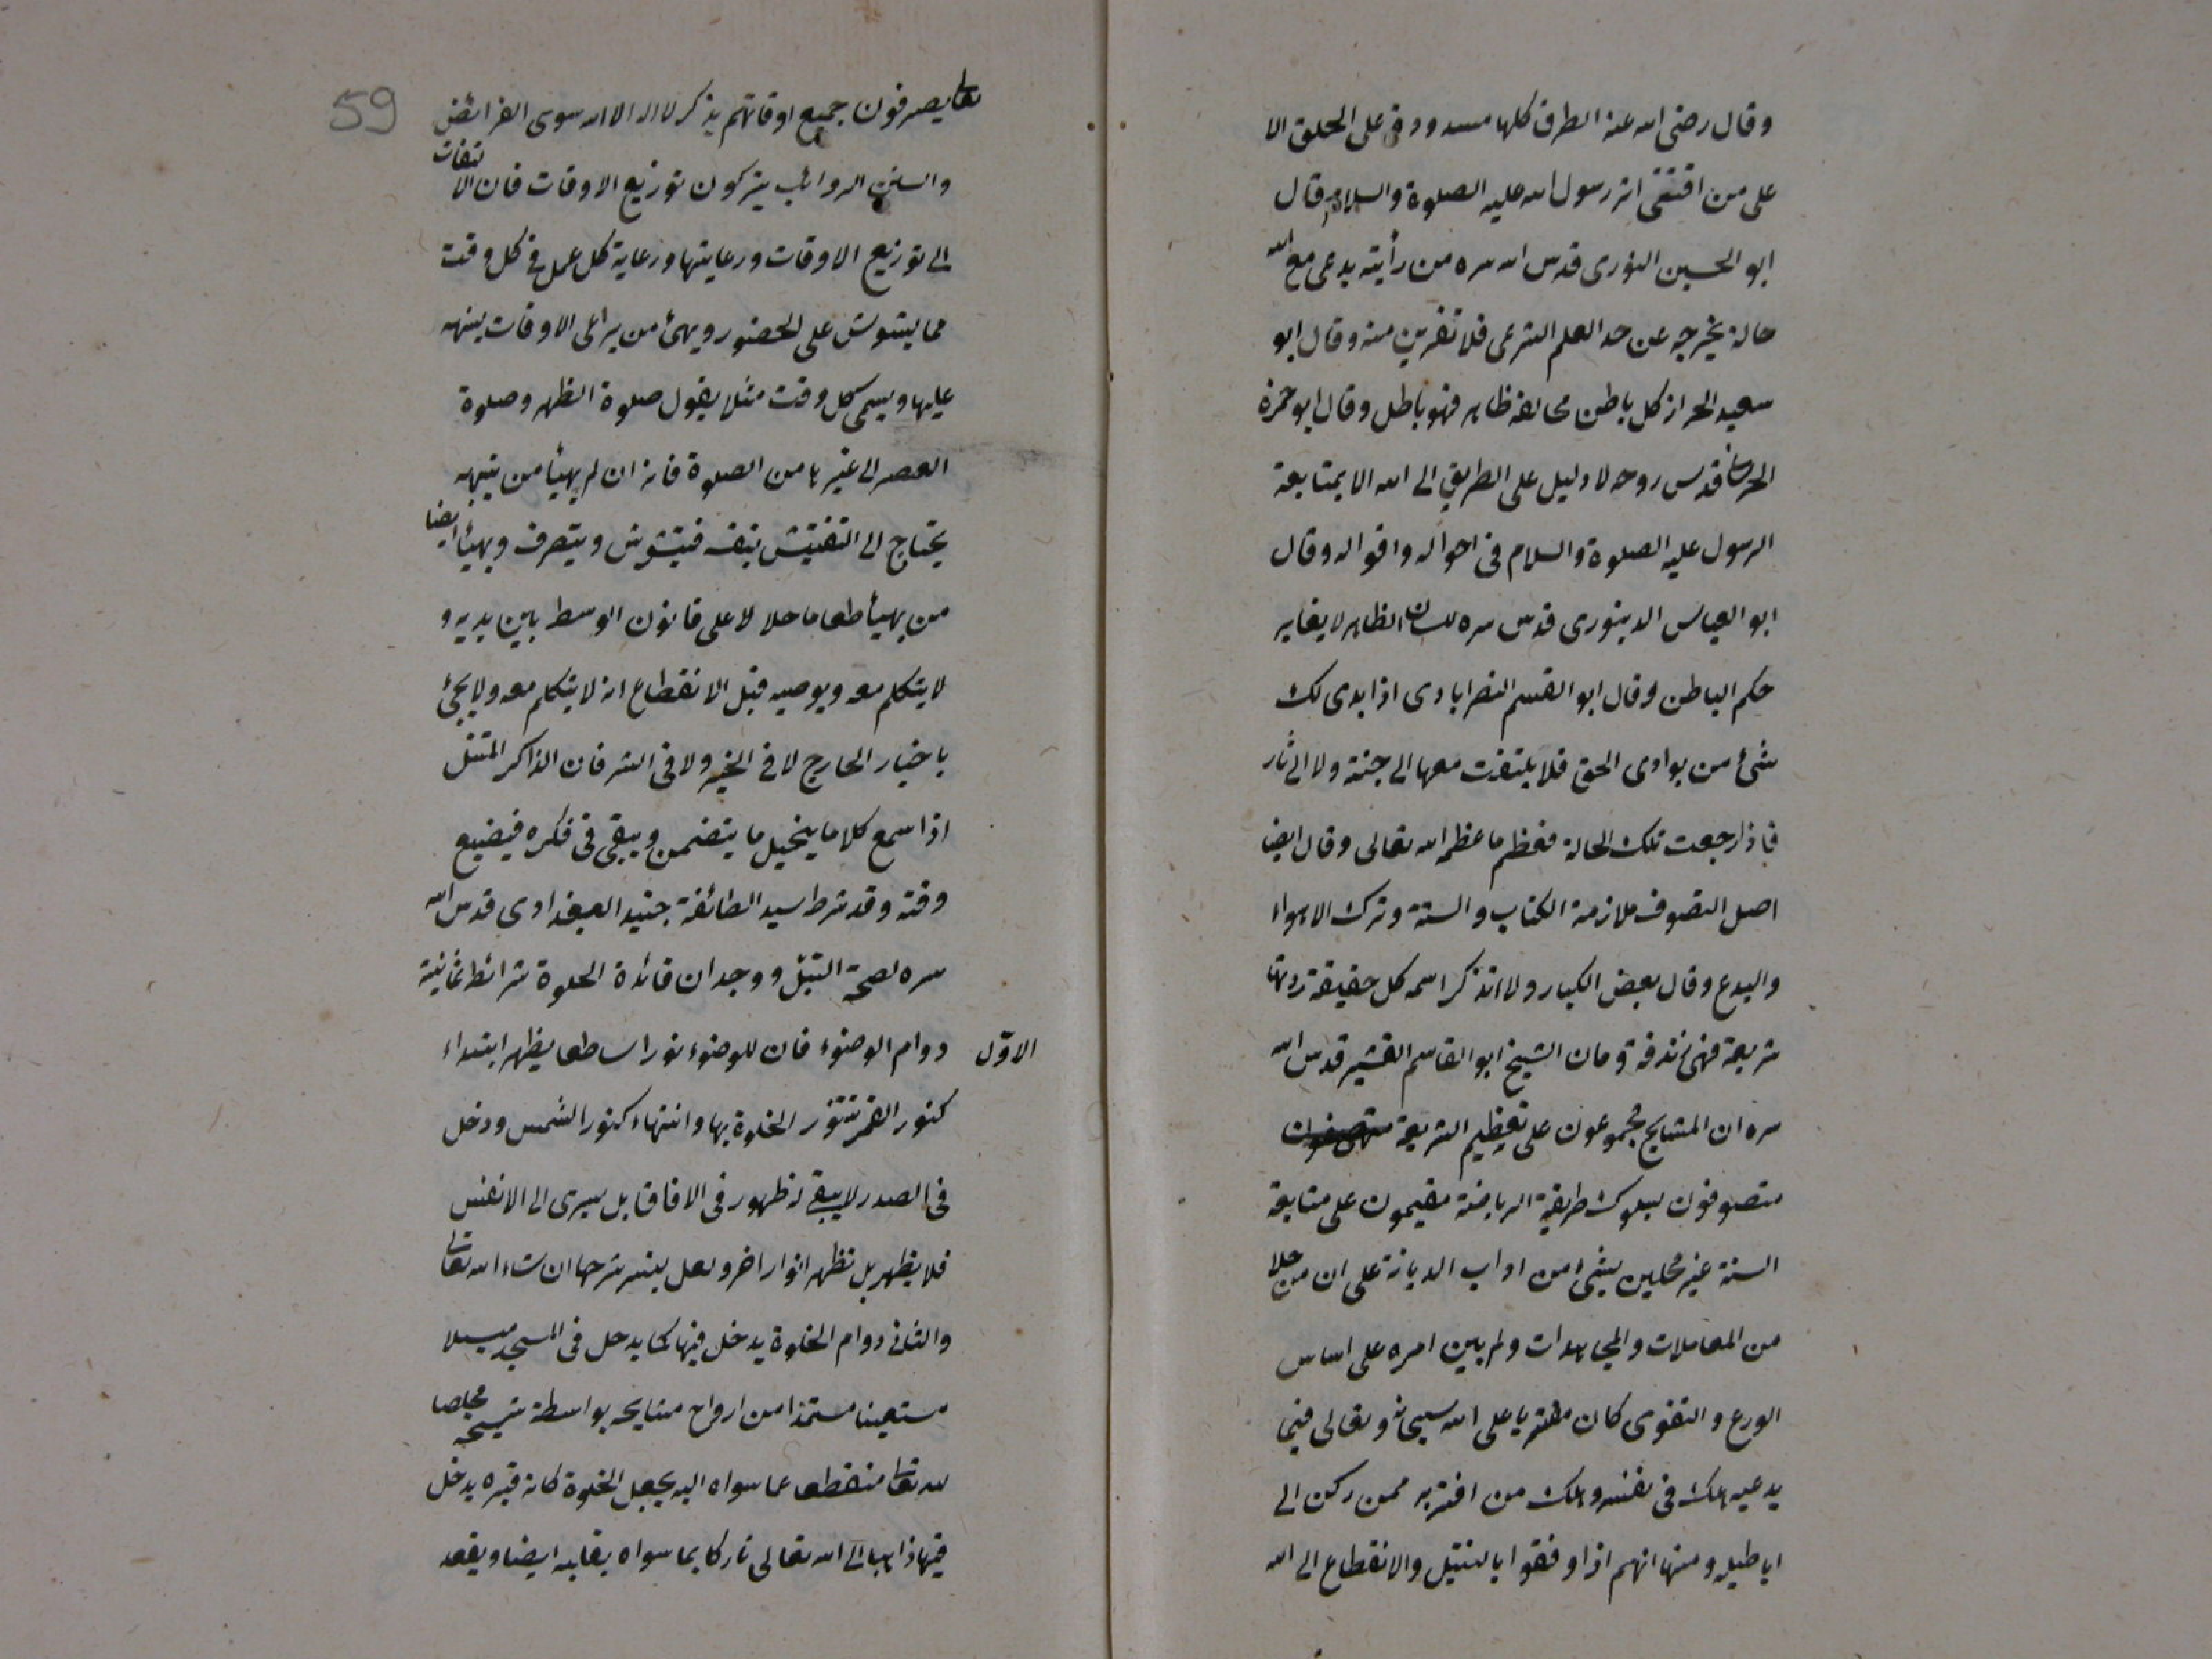 وقال رضى الله عنه الطرق كلها مسدودة على الخلق الا
على من اقتفى اثر رسول الله عليه الصلوة والسلام وقال
ابو الحسين النورى قدس الله سره من رأيته يدعى مع الله
حالة يخرجه عن حد العلم الشرعى فلا تقربن منه وقال ابو
سعيد الخراز كل باطن مخالفه ظاهر فهو باطل وقال ابو حمزة
قدس روحه لا دليل على الطريق الى الله الا بمتابعة
الرسول عليه الصلوة والسلام فى احواله واقواله وقال
ابو العباس الدينورى قدس سره لسان الظاهر لا يغاير
حكم الباطن وقال ابو القسم النصرابادى اذا بدى لك
شئ من بوادى الحق فلا يلتفت معها الى جنة ولا الى نار
فاذا رجعت تلك الحالة فعظم ما عظمه الله تعالى وقال ايضا
اصل التصوف ملازمة الكتاب والسنة وترك الاهواء
والبدع وقال بعض الكبار ولا اتذكر اسمه كل حقيقة ردتها
شريعة فهى زندقة وقال الشيخ ابو القاسم القشير قدس الله
سره ان المشايخ مجموعون على تعظيم الشريعة
متصوفون بسلوك طريقة الرياضة مقيمون على متابعة
السنة غير مخلين بشئ من اداب الديانة على ان من خلا
من المعاملات والمجاهدات ولم يبن امره على اساس
الورع والتقوى كان مفتريا على الله سبحانه وتعالى فيما
يدعيه هلك فى نفسه واهلك من اغتر به ممن ركن الى
اباطيله ومنها انهم اذا وفقوا بالتبتل والانقطاع الى الله
59
تعالى يصرفون جميع اوقاتهم بذكر لا اله الا الله سوى الفرائض
والسنن الرواتب يتركون توزيع الاوقات فان الالتفات
الى توزيع الاوقات ورعايتها ورعاية كل عمل فى كل وقت
مما يشوش على الحضور ويهئ من يراعى الاوقات ينبهه
عليها ويسمى كل وقت مثلا يقول صلوة الظهر وصلوة
العصر الى غيرها من الصلوة فانه ان لم يهيأ من ينبهه
يحتاج الى التفتيش بنفسه فيتشوش ويتصرف ويهيأ ايضا
من يهيأ طعاما حلالا على قانون الوسط بين يديه و
لا يتكلم معه ويوصيه قبل الانقطاع انه لا يتكلم معه ولا يجئ
باخبار الخارج لا فى الخير ولا فى الشر فان الذاكر المتبتل
اذا سمع كلاما يتخيل ما يتضمن ويبقى فى فكره فيضيع
وقته وقد شرط سيد الطائفة جنيد البغدادى قدس الله
سره لصحة التبتل ووجدان فائدة الخلوة شرائط ثمانية
الاوّل دوام الوضوء فان للوضوء نورا ساطعا يظهر ابتداء
كنور القمر تتنور الخلوة بها وانتهاء كنور الشمس ودخل
فى الصدر لا يبقى له ظهور فى الافاق بل يسرى الى الانفس
فلا يظهر بل تظهر انوار اخر ولعل يتيسر شرحها ان شاء الله تعالى
والثانى دوام الخلوة يدخل فيها كما يدخل فى المسجد مبسملا
مستعينا مستمدا من ارواح مشايخه بواسطة شيخه مخلصا
لله تعالى منقطعا عما سواه اليه يجعل الخلوة كانه قبره يدخل
فيها ذاهبا الى الله تعالى تاركا بما سواه بقلبه ايضا ويقعد